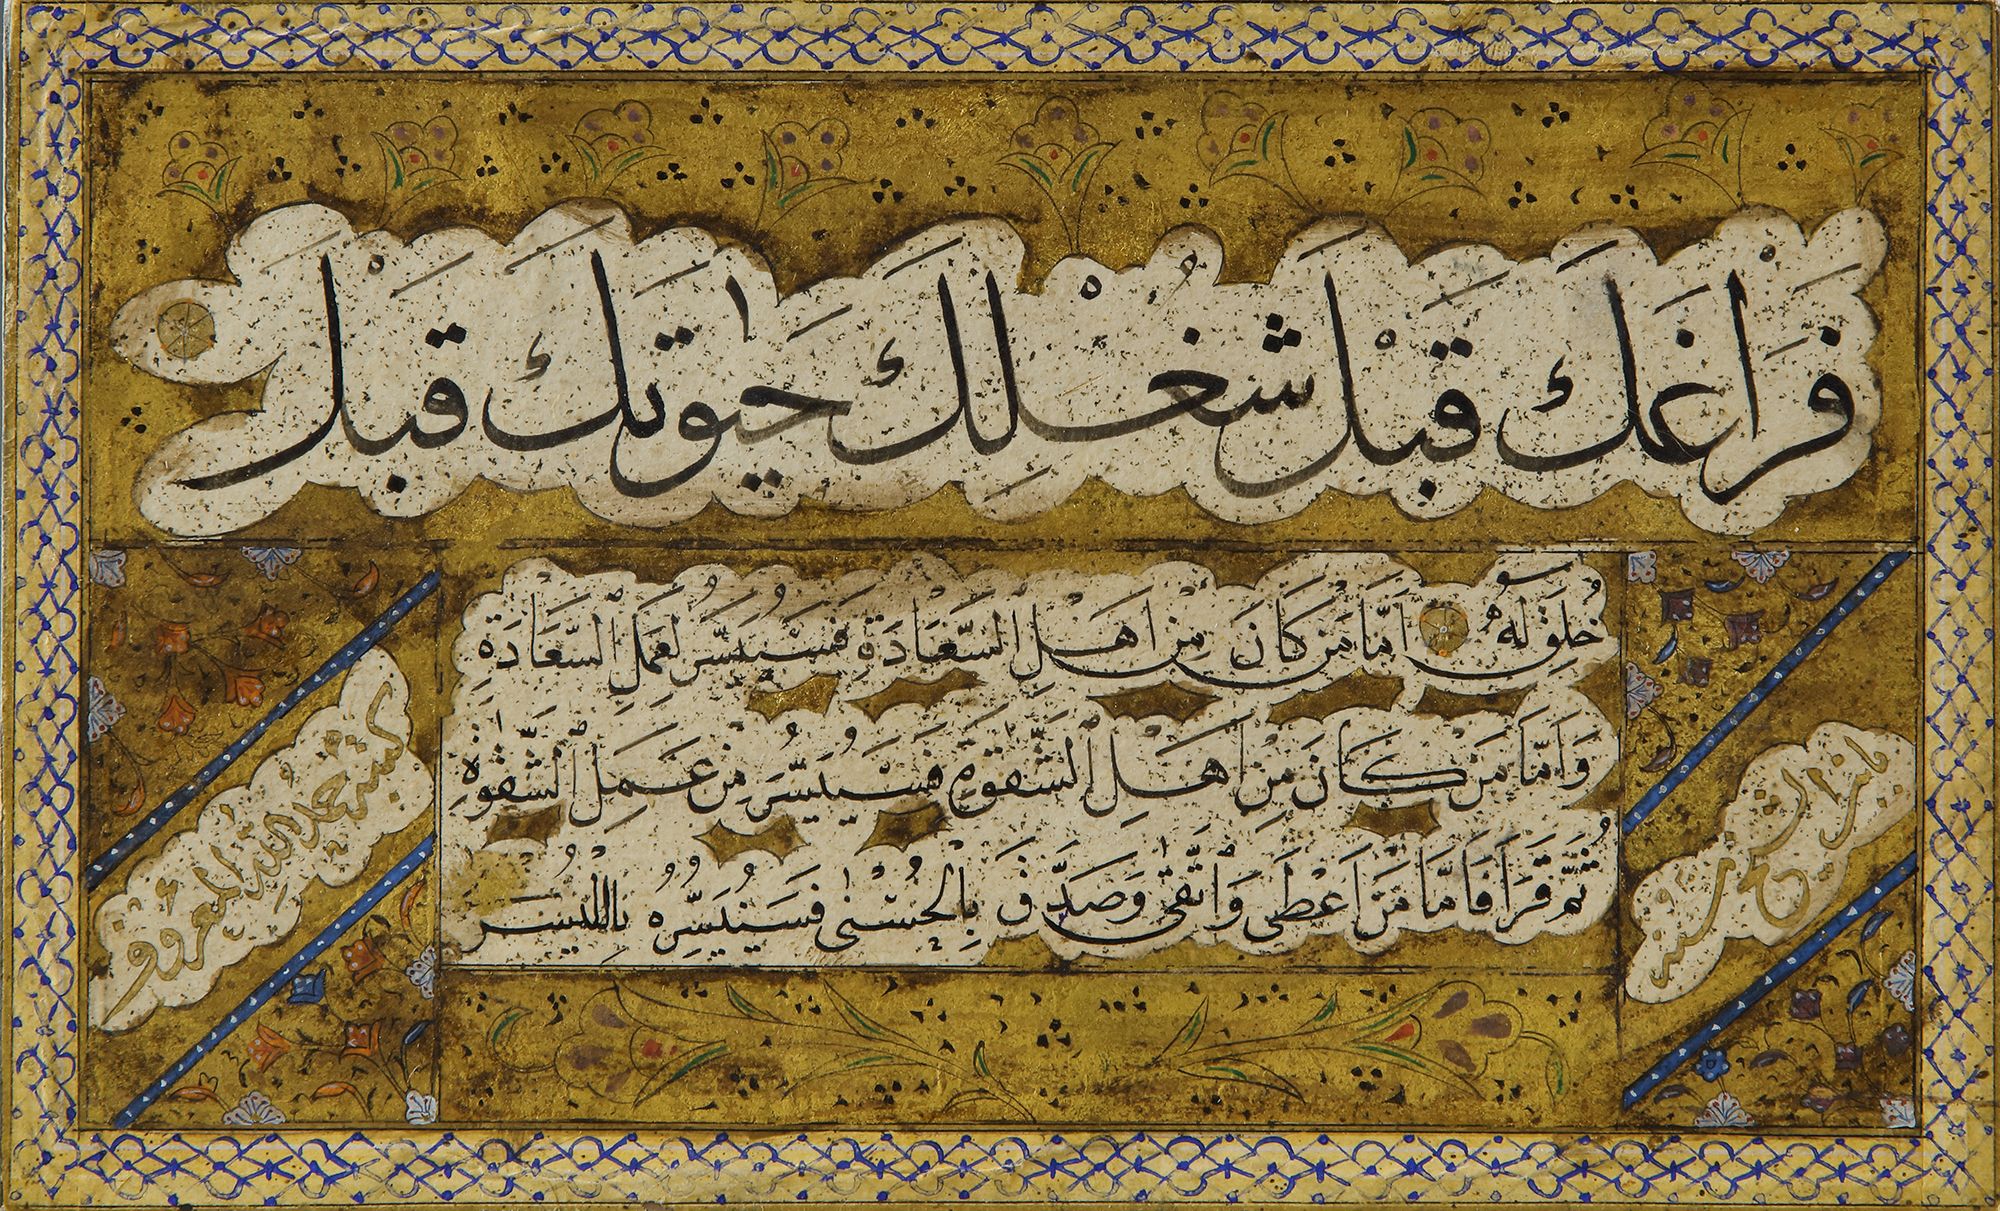 فَرَاغَكَ قَبْلَ شُغْلِكَ حَيٰوتَكَ قَبْلَ
خُلِقَ لَهُ اَمَّا مَنْ كَانَ مِنْ اَهْلِ السَّعَادَةِ فَسَيُيَسَّرُ لِعَمَلِ السَّعَادَةِ
وَاَمَّا مَنْ كَانَ مِنْ اَهْلِ الشَّقْوَةِ فَسَيُيَسَّرُ مِنْ عَمَلِ الشَّقْوَةِ
ثُمَّ قَرَاَ فَاَمَّا مَنْ اَعْطٰى وَاتَّقٰى وَصَدَّقَ بِالْحُسْنٰى فَسَنُيَسِّرُهُ
كتبه حمد الله المعروف
بابن الشيخ